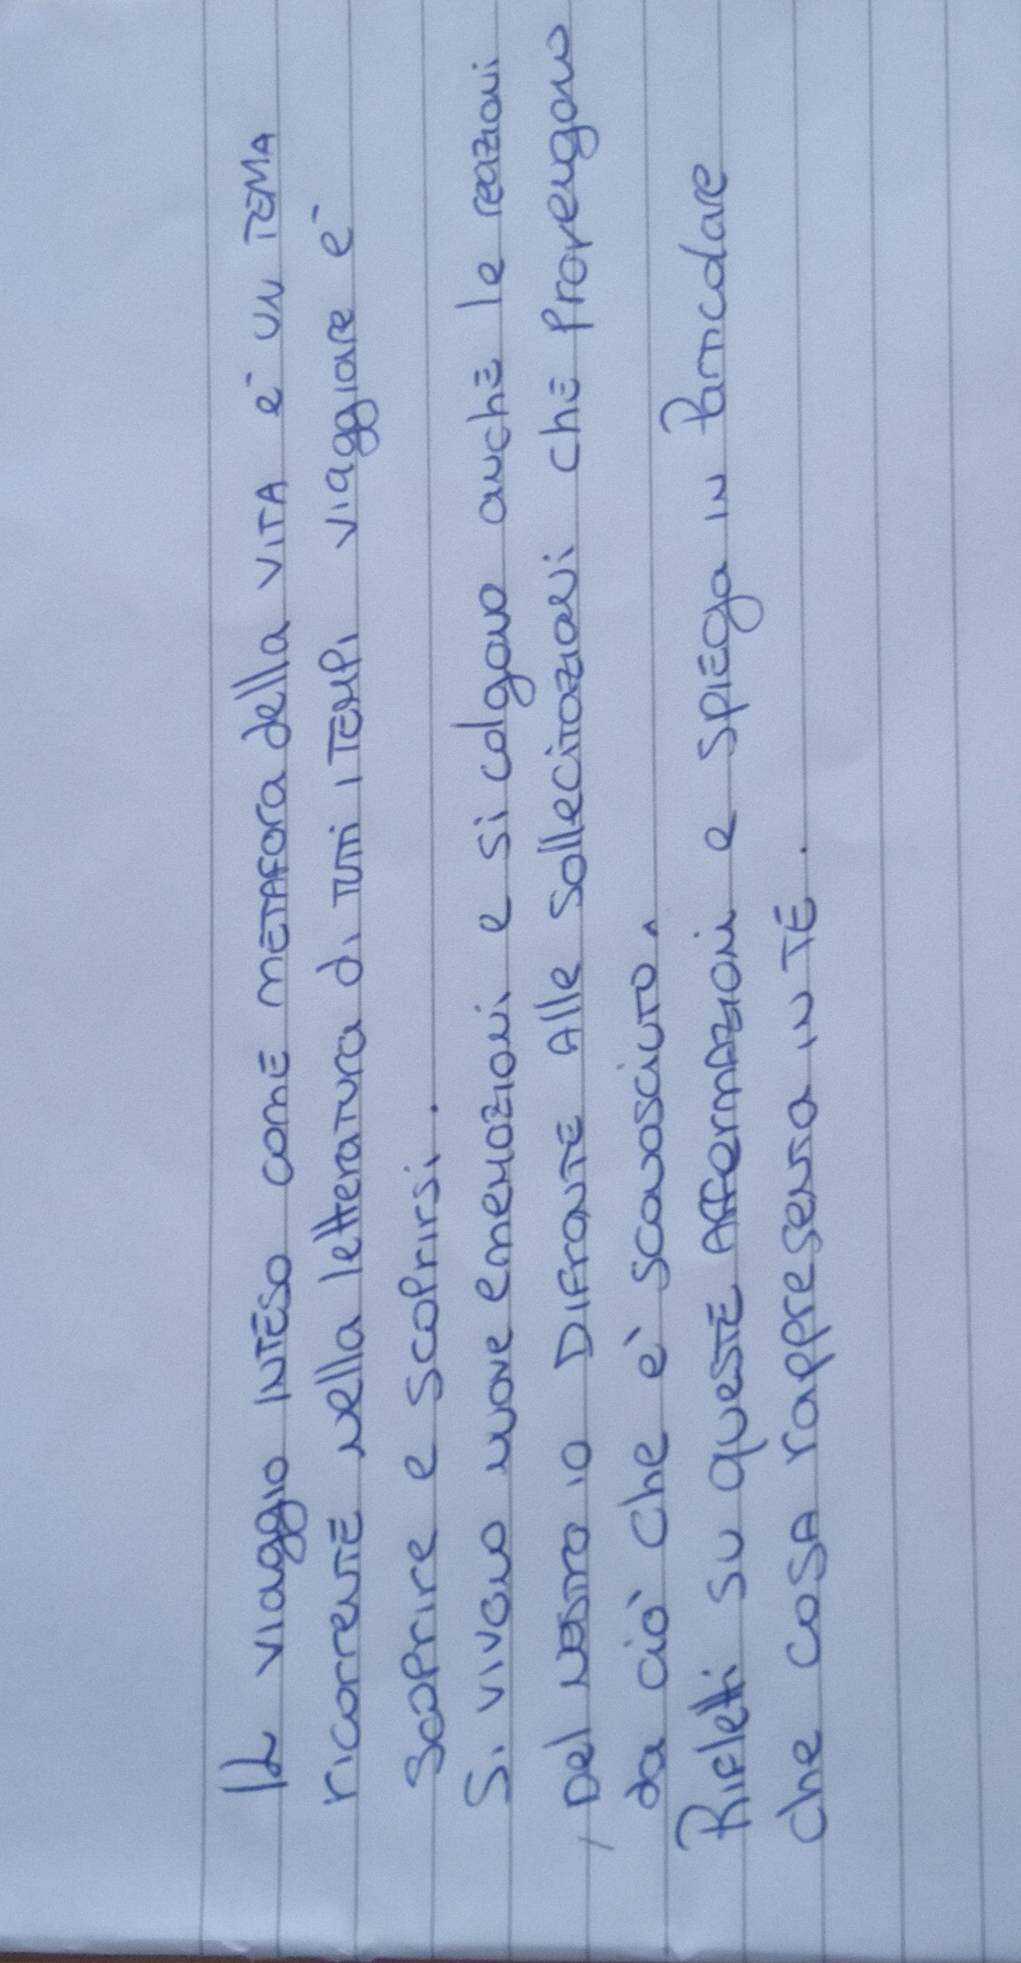 Il viaggio inteso come metafora della vita è un tema
ricorrente nella letteratura di tutti i tempi viaggiare è
scoprire e scoprirsi.
Si vivono nuove emenozioni e si colgono anche le reazioni
del nostro io difronte alle sollecitazioni che provengono
da ciò che è sconosciuto.
Rifletti su queste affermazioni e spiega in particolare
che cosa rappresenta in te.